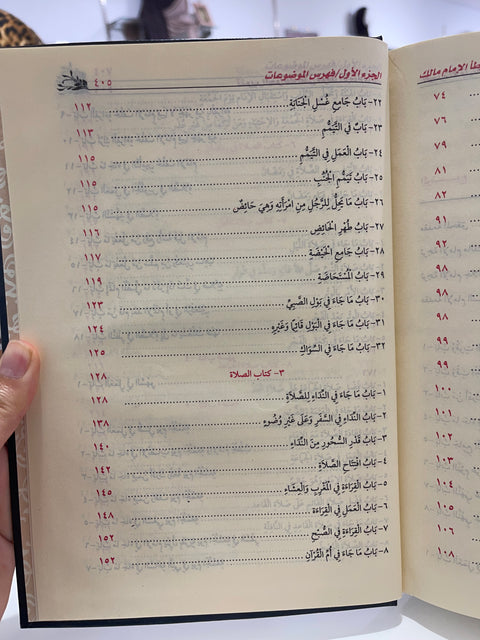 الجزء الأول/فهرس الموضوعات
٤٠٥
٢٢- بَابُ جَامِعِ غُسْلِ الجَنَابَةِ ١١٢
٢٣- بَابٌ فِي التَّيَمُّمِ ١١٣
٢٤- بَابُ العَمَلِ فِي التَّيَمُّمِ ١١٥
٢٥- بَابُ تَيَمُّمِ الجُنُبِ ١١٥
٢٦- بَابُ مَا يَحِلُّ لِلرَّجُلِ مِنِ امْرَأَتِهِ وَهِيَ حَائِضٌ ١١٥
٢٧- بَابُ طُهْرِ الحَائِضِ ١١٦
٢٨- بَابُ جَامِعِ الحَيْضَةِ ١١٧
٢٩- بَابُ المُسْتَحَاضَةِ ١١٩
٣٠- بَابُ مَا جَاءَ فِي بَوْلِ الصَّبِيِّ ١٢٣
٣١- بَابُ مَا جَاءَ فِي الْبَوْلِ قَائِمًا وَغَيْرِهِ ١٢٤
٣٢- بَابُ مَا جَاءَ فِي السِّوَاكِ ١٢٥
٣- كتاب الصلاة ١٢٨
١- بَابُ مَا جَاءَ فِي النِّدَاءِ لِلصَّلَاةِ ١٢٨
٢- بَابُ النِّدَاءِ فِي السَّفَرِ وَعَلَى غَيْرِ وُضُوءٍ ١٣٨
٣- بَابُ قَدْرِ السَّحُورِ مِنَ النِّدَاءِ ١٤٠
٤- بَابُ افْتِتَاحِ الصَّلَاةِ ١٤٢
٥- بَابُ القِرَاءَةِ فِي المَغْرِبِ وَالعِشَاءِ ١٤٥
٦- بَابُ العَمَلِ فِي القِرَاءَةِ ١٤٨
٧- بَابُ القِرَاءَةِ فِي الصُّبْحِ ١٥٢
٨- بَابُ مَا جَاءَ فِي أُمِّ القُرْآنِ ١٥٢
الإمام مالك
٧٤
٧٦
٧٩
٨١
٨٢
٩١
٩٢
٩٨
٩٨
٩٨
٩٩
٩٩
١٠٠
١٠١
١٠٢
١٠٣
١٠٤
١٠٥
١٠٦
١٠٨